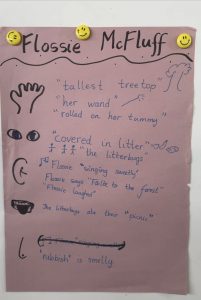 Flossie McFluff
"tallest treetop"
"her wand"
"rolled on her tummy"
"covered in litter"
"the litterbugs"
Flossie "singing sweetly"
Flossie says "Folk to the forest"
"Flossie laughed"
The litterbugs ate their "picnic"
"rubbish" is smelly